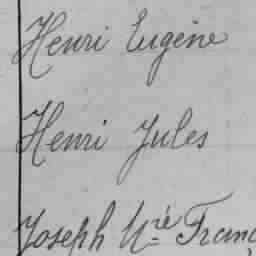 Henri Eugène
Henri Jules
Joseph M.rie Franç